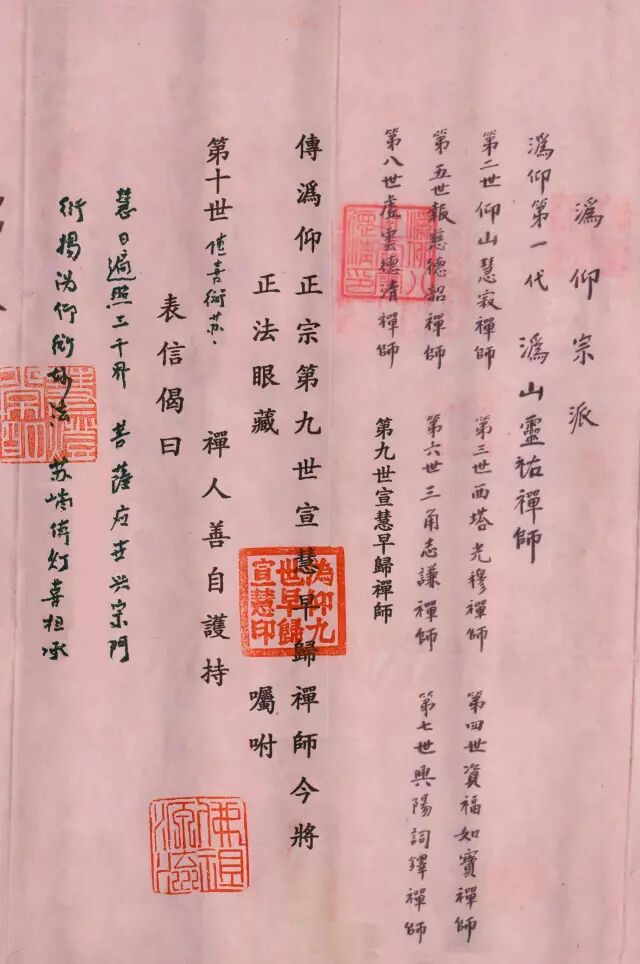 溈仰宗派
溈仰第一代 溈山靈祐禪師
第二世仰山慧寂禪師 第三世西塔光穆禪師 第四世資福如寶禪師
第五世報慈德韶禪師 第六世三角志謙禪師 第七世興陽詞鐸禪師
第八世虛雲德清禪師 第九世宣慧早歸禪師
傳溈仰正宗第九世宣慧早歸禪師今將
正法眼藏 囑咐
第十世 傳喜衍蘇 禪人善自護持
表信偈曰
慧日遍照三千界 菩薩应世兴宗門
衍揚沩仰衍妙法 苏 传灯喜担承
溈仰九
世早歸
宣慧印
佛祖
源流